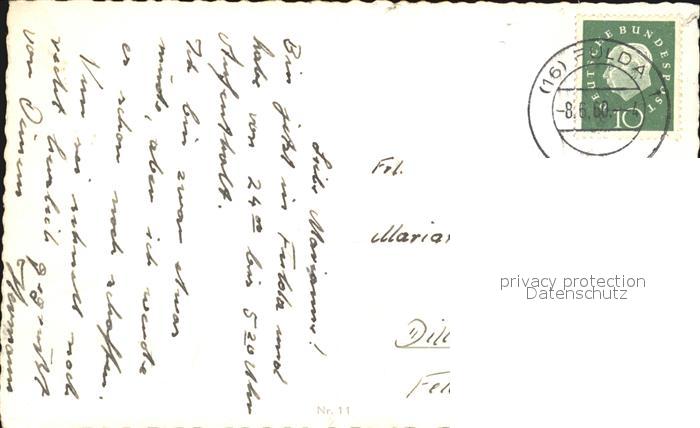 Liebe Marianne!
Bin jetzt in Fulda und
habe von 24⁰⁰ bis 5²⁰ Uhr
Aufenthalt.
Ich bin zwar etwas
müde, aber ich werde
es schon noch schaffen.
Nun sei schnell noch
recht herzlich gegrüßt
von Deinem Hermann
Frl.
Marian
Dill
Fel
Nr. 11
DEUTSCHE BUNDESPOST
10
(16) FULDA 1
-8.6.60.--
privacy protection
Datenschutz